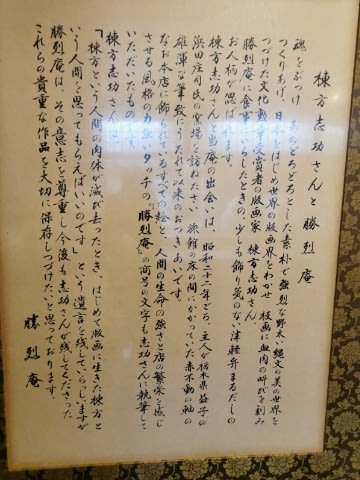 棟方志功さんと勝烈庵
魂をぶつけ あのどろどろとした素朴で強烈な野太い縄文の美の世界を
つくりあげ、日本をはじめ世界の版画界をわかせ 板画に血肉の叫びを刻み
つづけた文化勲章受賞者の版画家 棟方志功さん
勝烈庵に食事にいらしたときの、少しも飾り気のない津軽弁まるだしの
お人柄が偲ばれます。
棟方志功さんと当庵の出会いは、昭和二十二年ごろ、主人が栃木県益子の
浜田庄司氏の窯場を訪ねたさい 旅館の床の間にかかっていた赤不動の軸の
雄渾な筆致にうたれて以来のおつきあいです。
なお本店に飾られているすべての絵と、人間の生命の強さと店の繁栄を感じ
させる風格の力強いタッチの『勝烈庵』の商号の文字も志功さんに執筆して
いただいたものです。
棟方志功さんは
「棟方という人間の肉体が滅び去ったとき、はじめて版画に生きた棟方と
いう人間を思ってもらえばいいのです」という遺言を残していらっしいますが
勝烈庵は、その意志を尊重し今後も志功さんが残してくださった
これらの貴重な作品を大切に保存しつづけたいと思っております。
勝烈庵